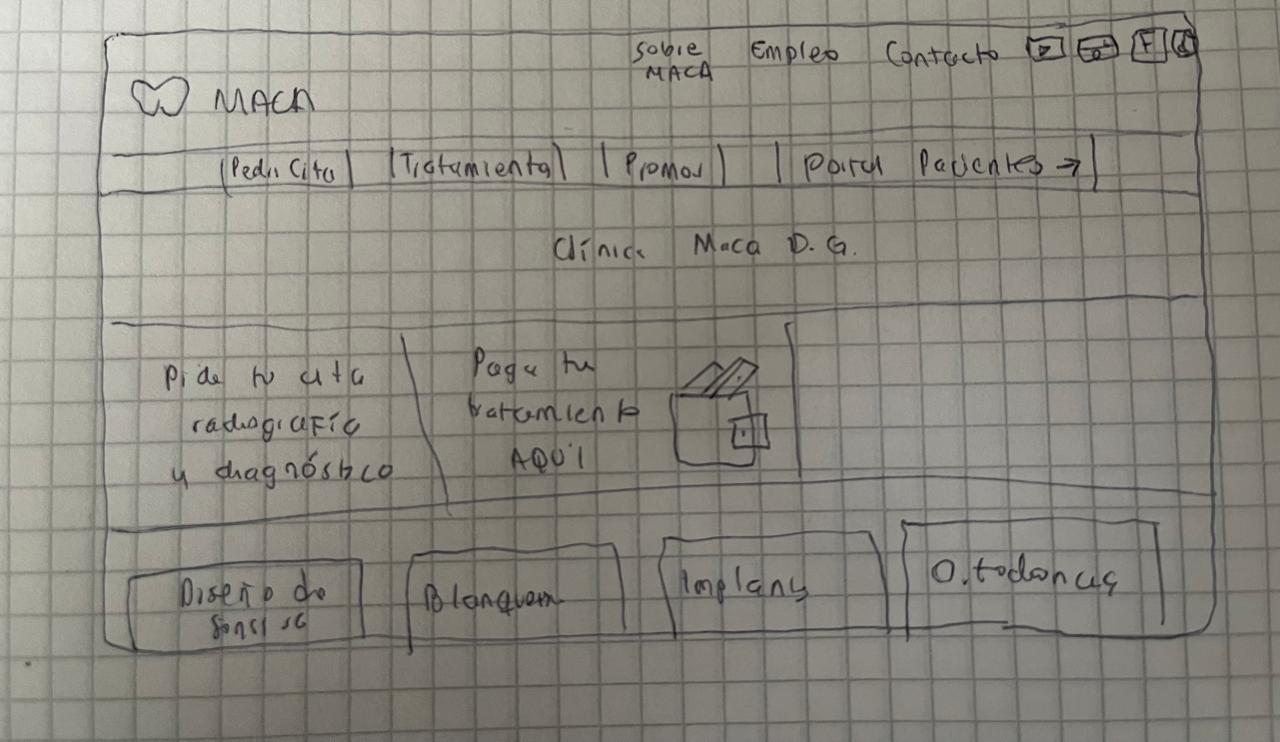 Sobre
MACA
Empleo
Contacto
F
MACA
Pedir Cita
Tratamiento
Promos
Portal Pacientes →
Clínica Maca D. G.
Pide tu cita
radiografía
y diagnóstico
Paga tu
tratamiento
AQUÍ
Diseño de
Sonrisa
Blanqueam
Implants
Ortodoncias